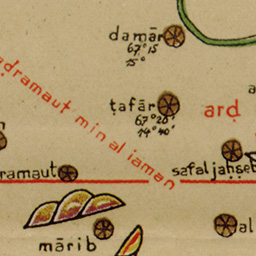 damār
67° 15
15°
ḍramaut min al iaman
ṭafār
67° 20'
14° 40'
arḍ
ramaut
safal jaḥṣeb
al
mārib